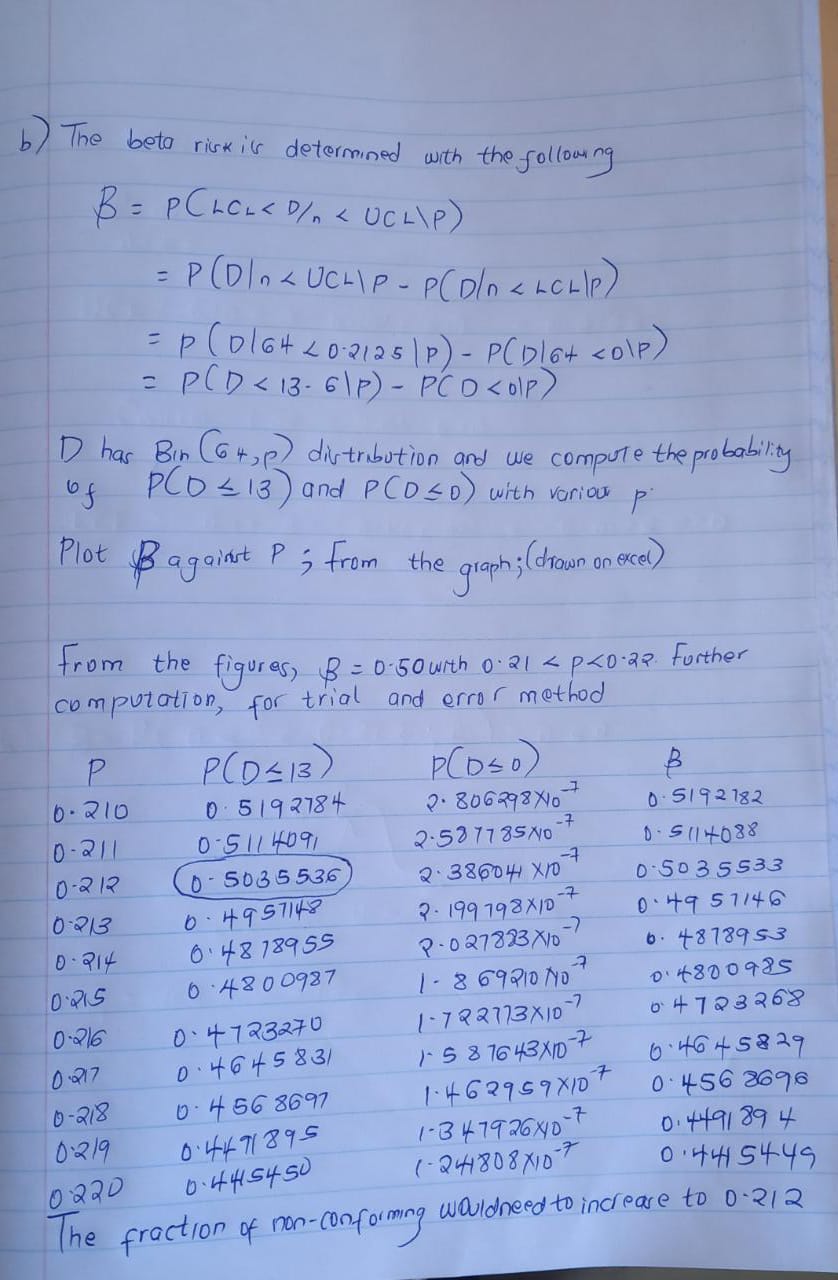 b) The beta risk is determined with the following
β = P(LCL < D/n < UCL\P)
= P(D/n < UCL\P - P(D/n < LCL|P)
= P(D/64 < 0.2125|P) - P(D/64 < 0\P)
= P(D < 13.6\P) - P(D < 0|P)
D has Bin (64,p) distribution and we compute the probability
of P(D ≤ 13) and P(D ≤ 0) with various p.
Plot β against P; from the graph; (drawn on excel)
From the figures, β = 0.50 with 0.21 < p < 0.22. Further
computation, for trial and error method
P P(D ≤ 13) P(D ≤ 0) β
0.210 0.5192784 2.806298×10⁻⁷ 0.5192782
0.211 0.5114091 2.587785×10⁻⁷ 0.5114088
0.212 0.5035536 2.386041×10⁻⁷ 0.5035533
0.213 0.4957148 2.199798×10⁻⁷ 0.4957146
0.214 0.4878955 2.027883×10⁻⁷ 0.4878953
0.215 0.4800987 1.869210×10⁻⁷ 0.4800985
0.216 0.4723270 1.722773×10⁻⁷ 0.4723268
0.217 0.4645831 1.587643×10⁻⁷ 0.4645829
0.218 0.4568697 1.462959×10⁻⁷ 0.4568696
0.219 0.4491895 1.347926×10⁻⁷ 0.4491894
0.220 0.445450 1.241808×10⁻⁷ 0.4415449
The fraction of non-conforming would need to increase to 0.212